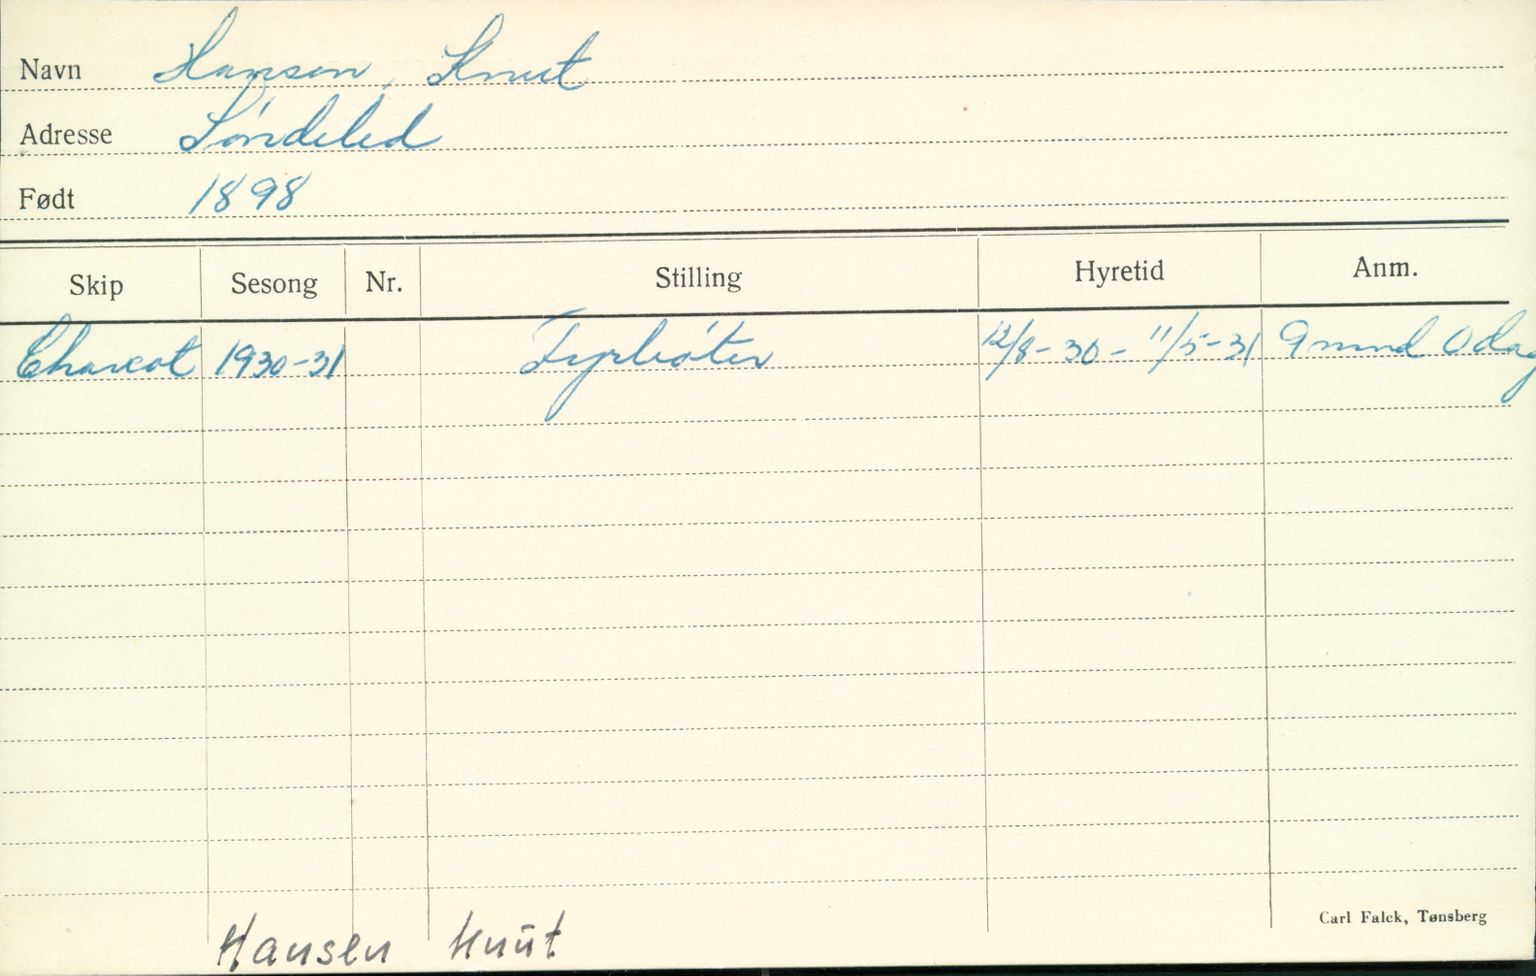 Navn Hansen, Knut
Adresse Søndeled
Født 1898
Skip Sesong Nr. Stilling Hyretid Anm.
Charcot 1930-31 Fyrbøter 12/8-30 - 11/5-31 9 mnd 0 dag
Carl Falck, Tønsberg
Hansen Knut